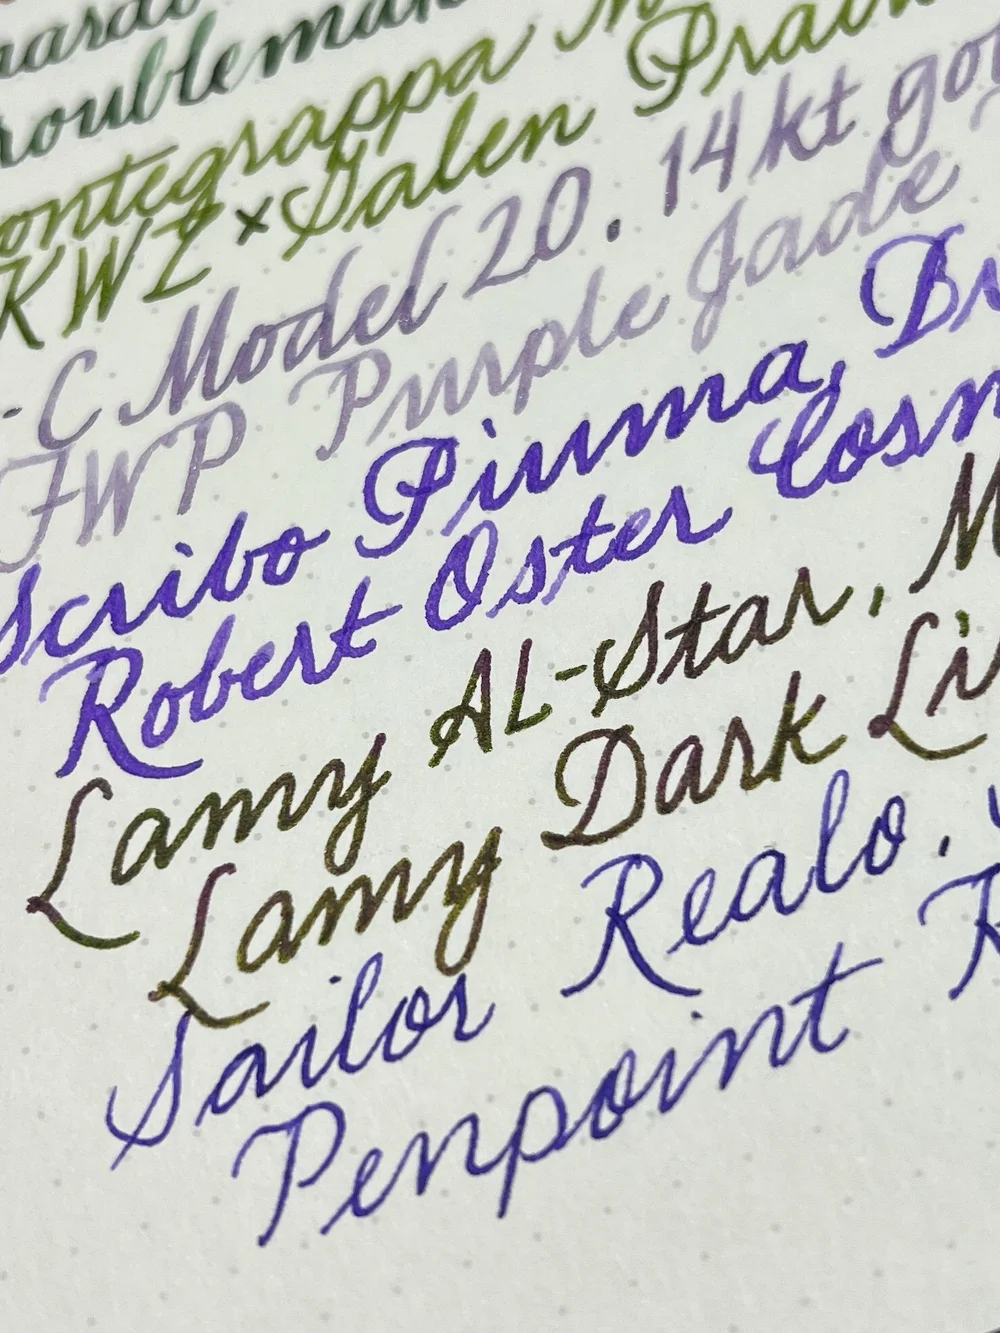 roublema
ontegrappa
KWZ × Galen Prair
C Model 20. 14kt gol
FWP Purple Jade
Scribo Piuma, Br
Robert Oster Cosm
Lamy AL-Star, M
Lamy Dark Li
Sailor Realo.
Penpoint